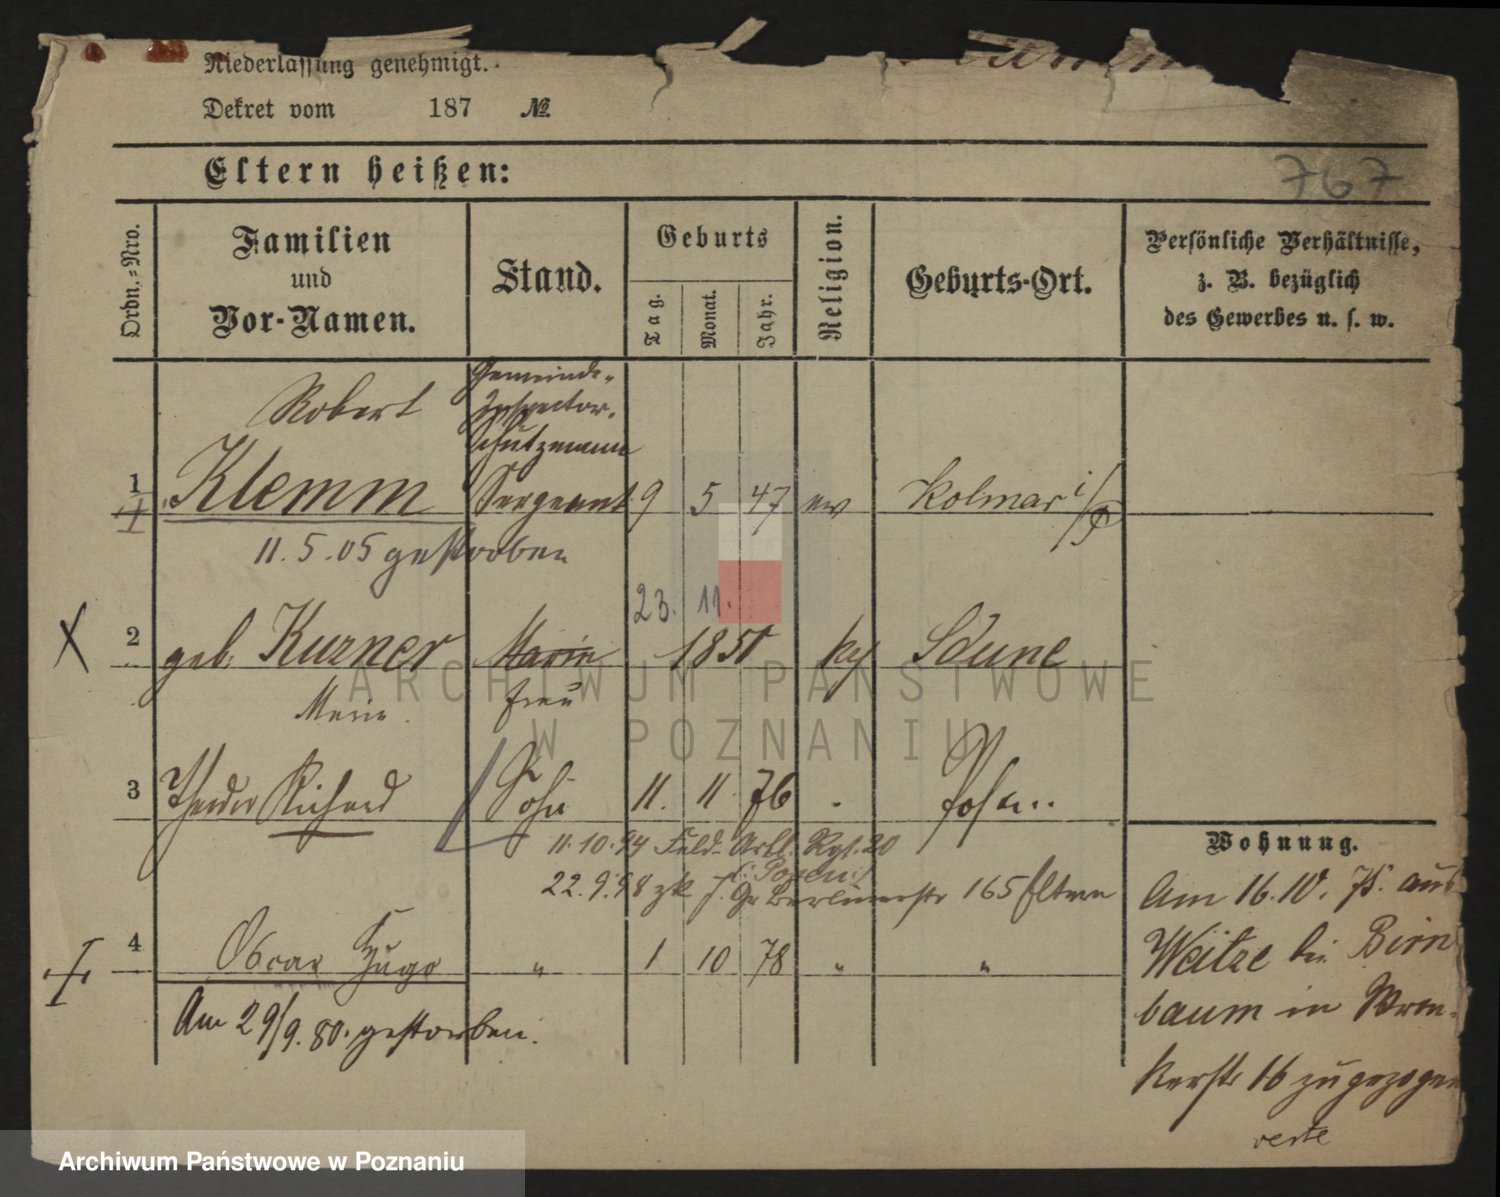 Niederlassung genehmigt.
Dekret vom 187 №
Eltern heißen:
767
Ordn.-Nro.
Familien
und
Vor-Namen.
Stand.
Geburts
Tag.
Monat.
Jahr.
Religion.
Geburts-Ort.
Persönliche Verhältnisse,
z. B. bezüglich
des Gewerbes u. s. w.
Robert
Gemeinde-
Inspector.
Schutzmann
1 Klemm Sergeant 9 5 47 ev Kolmar i/P
11.5.05 gestorben
23. 11.
2 geb. Kurzner Marie 1851 Scune
Marie. Frau
3 Theodor Richard Sohn 11. 11. 76 Posen..
11.10.94 Feld-Artl. Rgt. 20
(: Posen :)
22.9.98 zk f. Gr Berlinerstr 165 Eltern
4 Oscar Hugo " 1 10 78 " "
Am 29/9.80. gestorben.
Wohnung.
Am 16.10. 75. aus
Weitze bei Birn
baum in
16 zugezogen
ARCHIWUM PAŃSTWOWE
W POZNANIU
Archiwum Państwowe w Poznaniu